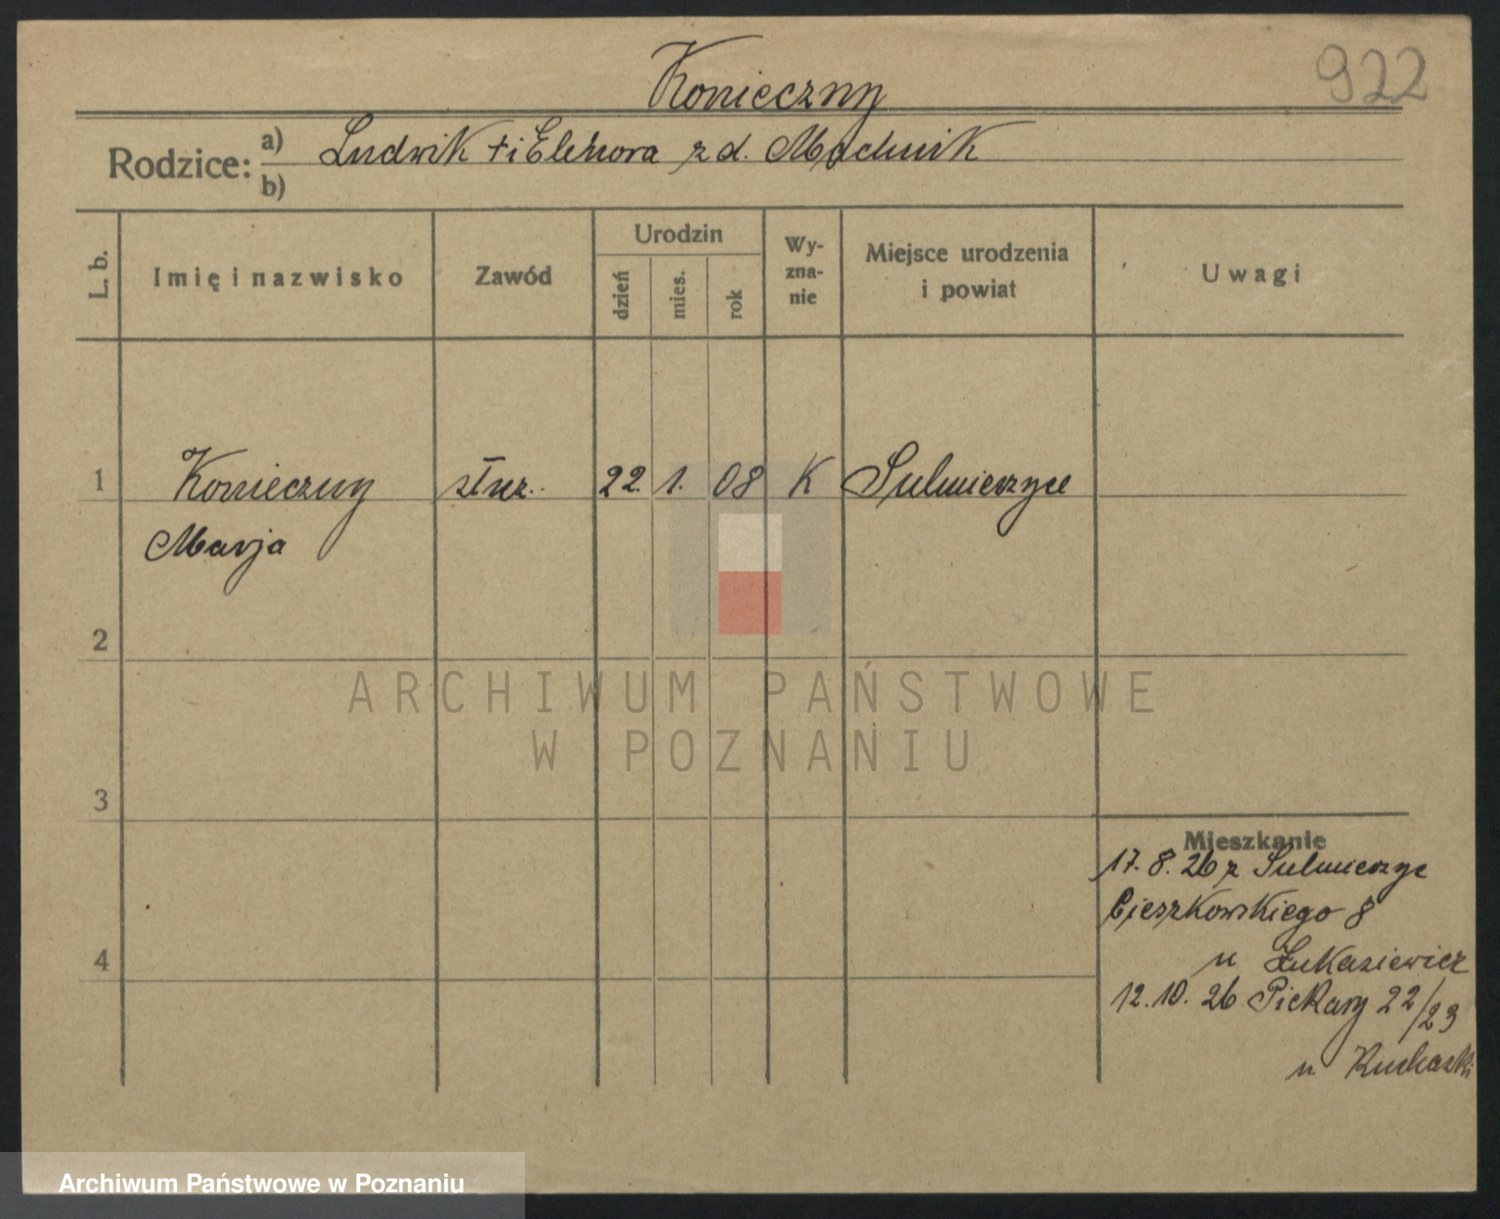 Konieczny
922
Rodzice: a) Ludwik † i Eleonora z d. Machnik
b)
L. b.
Imię i nazwisko
Zawód
Urodzin
dzień
mies.
rok
Wy-
zna-
nie
Miejsce urodzenia
i powiat
Uwagi
1 Konieczny służ. 22. 1. 08 K Sulmierzyce
Marja
2
3
4
Mieszkanie
17. 8. 26 z Sulmierzyc
Cieszkowskiego 8
u Łukasiewicz
12. 10. 26 Piekary 22/23
u
ARCHIWUM PAŃSTWOWE
W POZNANIU
Archiwum Państwowe w Poznaniu